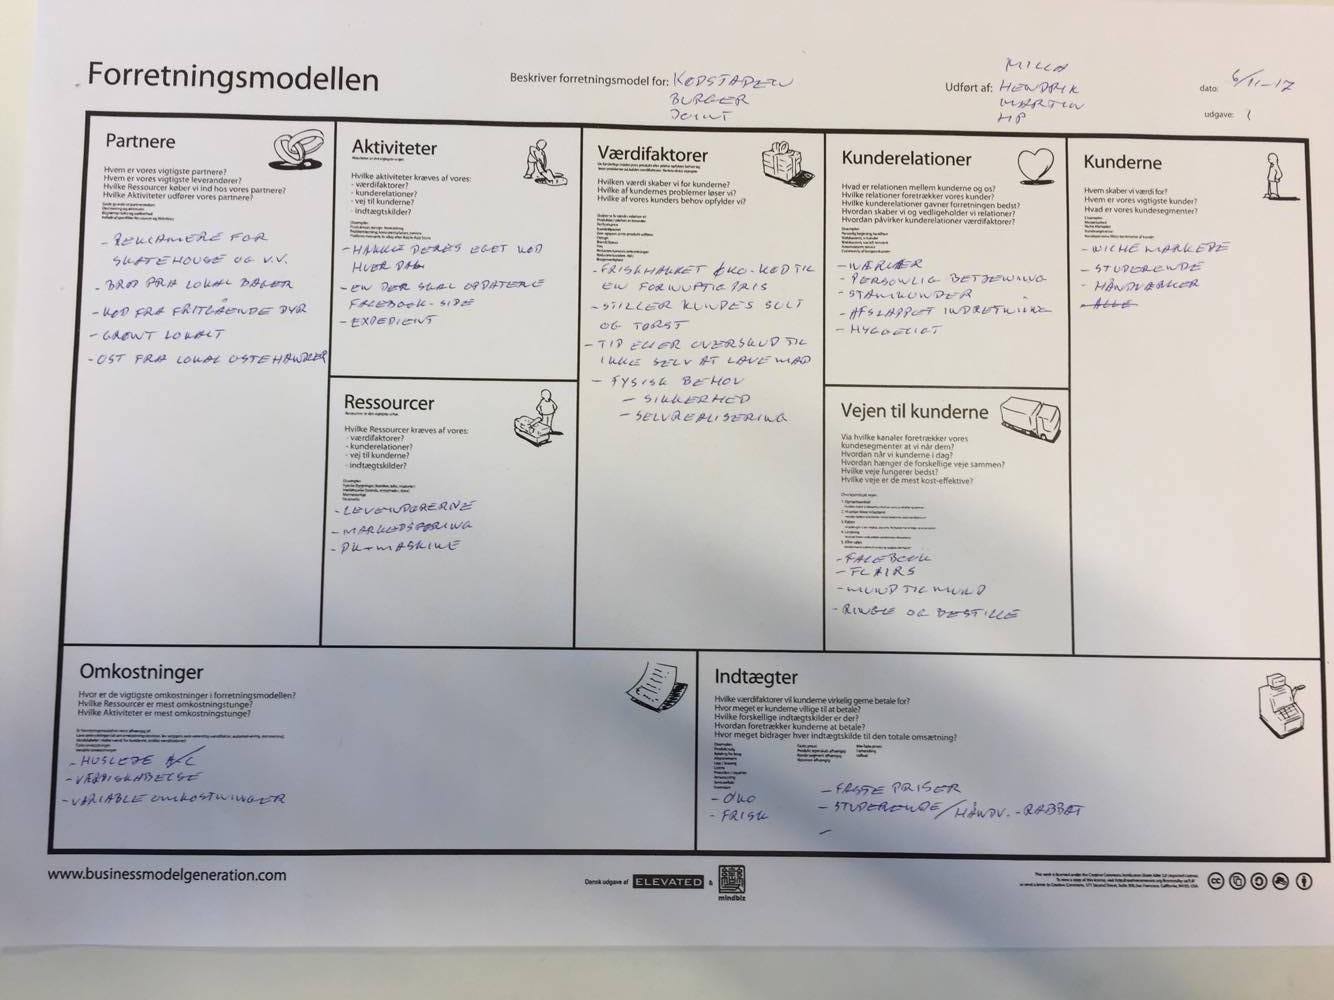 Forretningsmodellen
Beskriver forretningsmodel for: KØDSTADEN
BURGER
JOINT
Udført af:
MILLA
HENDRIK
MARTIN
MP
dato: 6/11-17
udgave: 1
Partnere
Hvem er vores vigtigste partnere?
Hvem er vores vigtigste leverandører?
Hvilke Ressourcer køber vi ind hos vores partnere?
Hvilke Aktiviteter udfører vores partnere?
- REKLAMERE FOR
SKATEHOUSE OG V.V.
- BRØD FRA LOKAL BAGER
- KØD FRA FRITGÅENDE DYR
- GRØNT LOKALT
- OST FRA LOKAL OSTEHANDLER
Aktiviteter
Hvilke aktiviteter kræves af vores:
- værdifaktorer?
- kunderelationer?
- vej til kunderne?
- indtægtskilder?
- HAKKE DERES EGET KØD
HVER DAG
- EN DER SKAL OPDATERE
FACEBOOK-SIDE
- EXPEDIENT
Ressourcer
Hvilke Ressourcer kræves af vores:
- værdifaktorer?
- kunderelationer?
- vej til kunderne?
- indtægtskilder?
- LEVERANDØRERNE
- MARKEDSFØRING
- DK-MASKINE
Værdifaktorer
Hvilken værdi skaber vi for kunderne?
Hvilke af kundernes problemer løser vi?
Hvilke af vores kunders behov opfylder vi?
- FRISKHAKKET ØKO-KØD TIL
EN FORNUFTIG PRIS
- STILLER KUNDES SULT
OG TØRST
- TID ELLER OVERSKUD TIL
IKKE SELV AT LAVE MAD
- FYSISK BEHOV
- SIKKERHED
- SELVREALISERING
Kunderelationer
Hvad er relationen mellem kunderne og os?
Hvilke relationer foretrækker vores kunder?
Hvilke kunderelationer gavner forretningen bedst?
Hvordan skaber vi og vedligeholder vi relationer?
Hvordan påvirker kunderelationer værdifaktorer?
- NÆRVÆR
- PERSONLIG BETJENING
- STAMKUNDER
- AFSLAPPET INDRETNING
- HYGGELIGT
Vejen til kunderne
Via hvilke kanaler foretrækker vores
kundesegmenter at vi når dem?
Hvordan når vi kunderne i dag?
Hvordan hænger de forskellige veje sammen?
Hvilke veje fungerer bedst?
Hvilke veje er de mest kost-effektive?
- FACEBOOK
- FLAIRS
- MUND TIL MUND
- RINGE OG BESTILLE
Kunderne
Hvem skaber vi værdi for?
Hvem er vores vigtigste kunder?
Hvad er vores kundesegmenter?
- NICHE MARKEDE
- STUDERENDE
- HÅNDVÆRKER
- ALLE
Omkostninger
Hvor er de vigtigste omkostninger i forretningsmodellen?
Hvilke Ressourcer er mest omkostningstunge?
Hvilke Aktiviteter er mest omkostningstunge?
- HUSLEJE
- VÆRDISKABELSE
- VARIABLE OMKOSTNINGER
Indtægter
Hvilke værdifaktorer vil kunderne virkelig gerne betale for?
Hvor meget er kunderne villige til at betale?
Hvilke forskellige indtægtskilder er der?
Hvordan foretrækker kunderne at betale?
Hvor meget bidrager hver indtægtskilde til den totale omsætning?
- ØKO
- FRISK
- FASTE PRISER
- STUDERENDE/HÅNDV.-RABBAT
-
www.businessmodelgeneration.com
Dansk udgave af ELEVATED & mindbiz